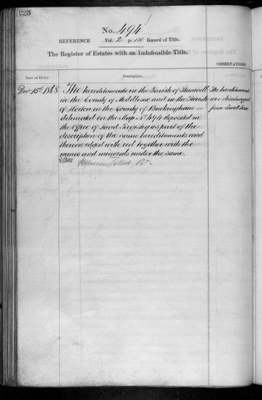 No. 494
REFERENCE Vol. 2 p. Record of Title.
The Register of Estates with an Indefeasible Title.
Date of Entry. Description. OBSERVATIONS
Decr 15th 1868 The hereditaments in the Parish of Stanwell
in the County of Middlesex and in the Parish
of Horton in the County of Buckingham
delineated on the Map No 494 deposited in
the Office of Land Registry as part of the
description of the same hereditaments and
thereon edged with red together with the
mines and minerals under the same.
The hereditaments
are discharged
from Land Tax